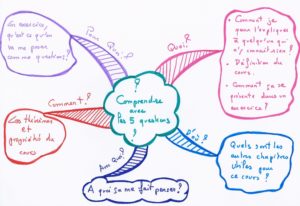 En exercice,
qu'est ce qu'on
va me poser
comme questions?
Pour Quoi?
Quoi?
• Comment je
peux l'expliquer
à quelqu'un qui
n'y connait rien?
• Définition du
cours.
• Comment ça se
présente dans un
exercice?
Comment?
Les théorèmes
et
propriétés du
cours
Comprendre
avec
les 5 questions
!
D'où?
Quels sont les
autres chapitres
utiles pour
ce cours?
À Quoi?
À quoi ça me fait penser?